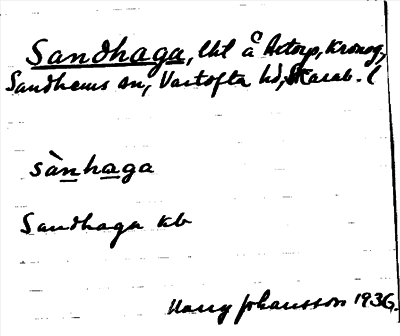 Sandhaga, lht å Åstorp, Kronog.,
Sandhems sn, Vartofta hd, Skarab. l
sànhaga
Sandhaga kb
Harry Johansson 1936.